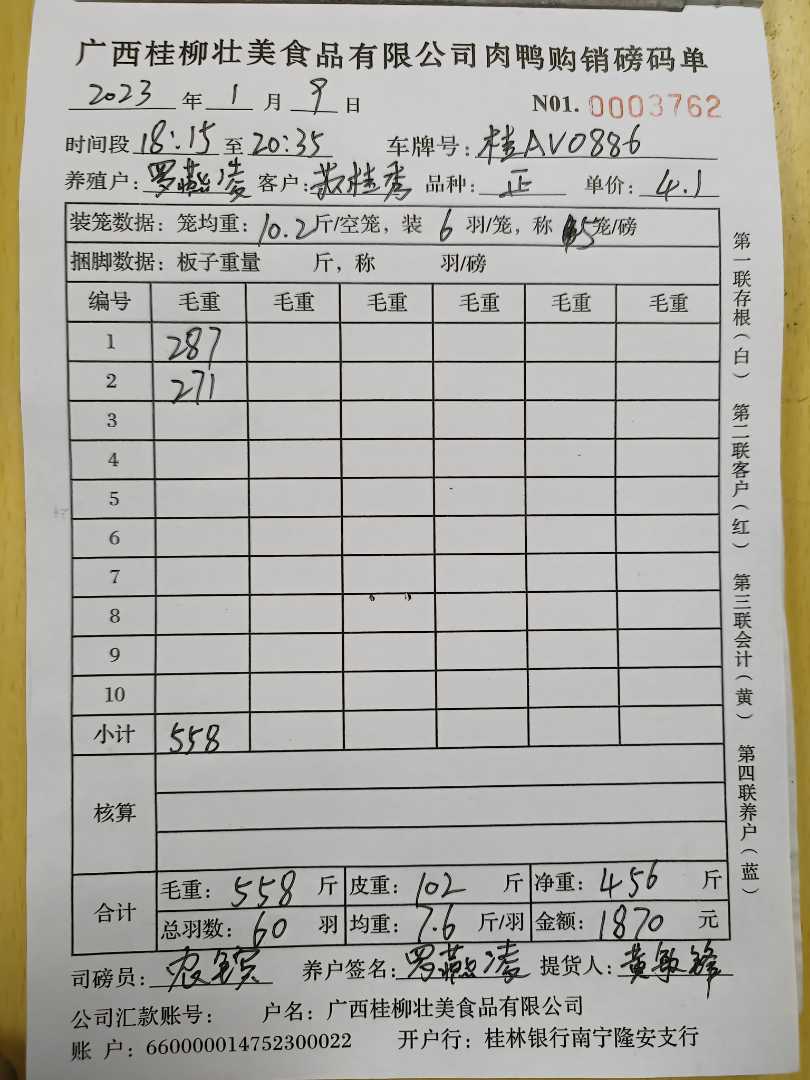 广西桂柳壮美食品有限公司肉鸭购销磅码单
2023 年 1 月 9 日 N01. 0003762
时间段 18:15 至 20:35 车牌号: 桂AV0886
养殖户: 罗燕凌 客户: 苏桂秀 品种: 正 单价: 4.1
装笼数据: 笼均重: 10.2 斤/空笼, 装 6 羽/笼, 称 5 笼/磅
捆脚数据: 板子重量 斤, 称 羽/磅
编号 毛重 毛重 毛重 毛重 毛重 毛重
1 287
2 271
3
4
5
6
7
8
9
10
小计 558
核算
合计 毛重: 558 斤 皮重: 102 斤 净重: 456 斤
总羽数: 60 羽 均重: 7.6 斤/羽 金额: 1870 元
司磅员: 养户签名: 罗燕凌 提货人: 黄敏锋
公司汇款账号: 户名: 广西桂柳壮美食品有限公司
账 户: 660000014752300022 开户行: 桂林银行南宁隆安支行
第一联存根(白) 第二联客户(红) 第三联会计(黄) 第四联养户(蓝)